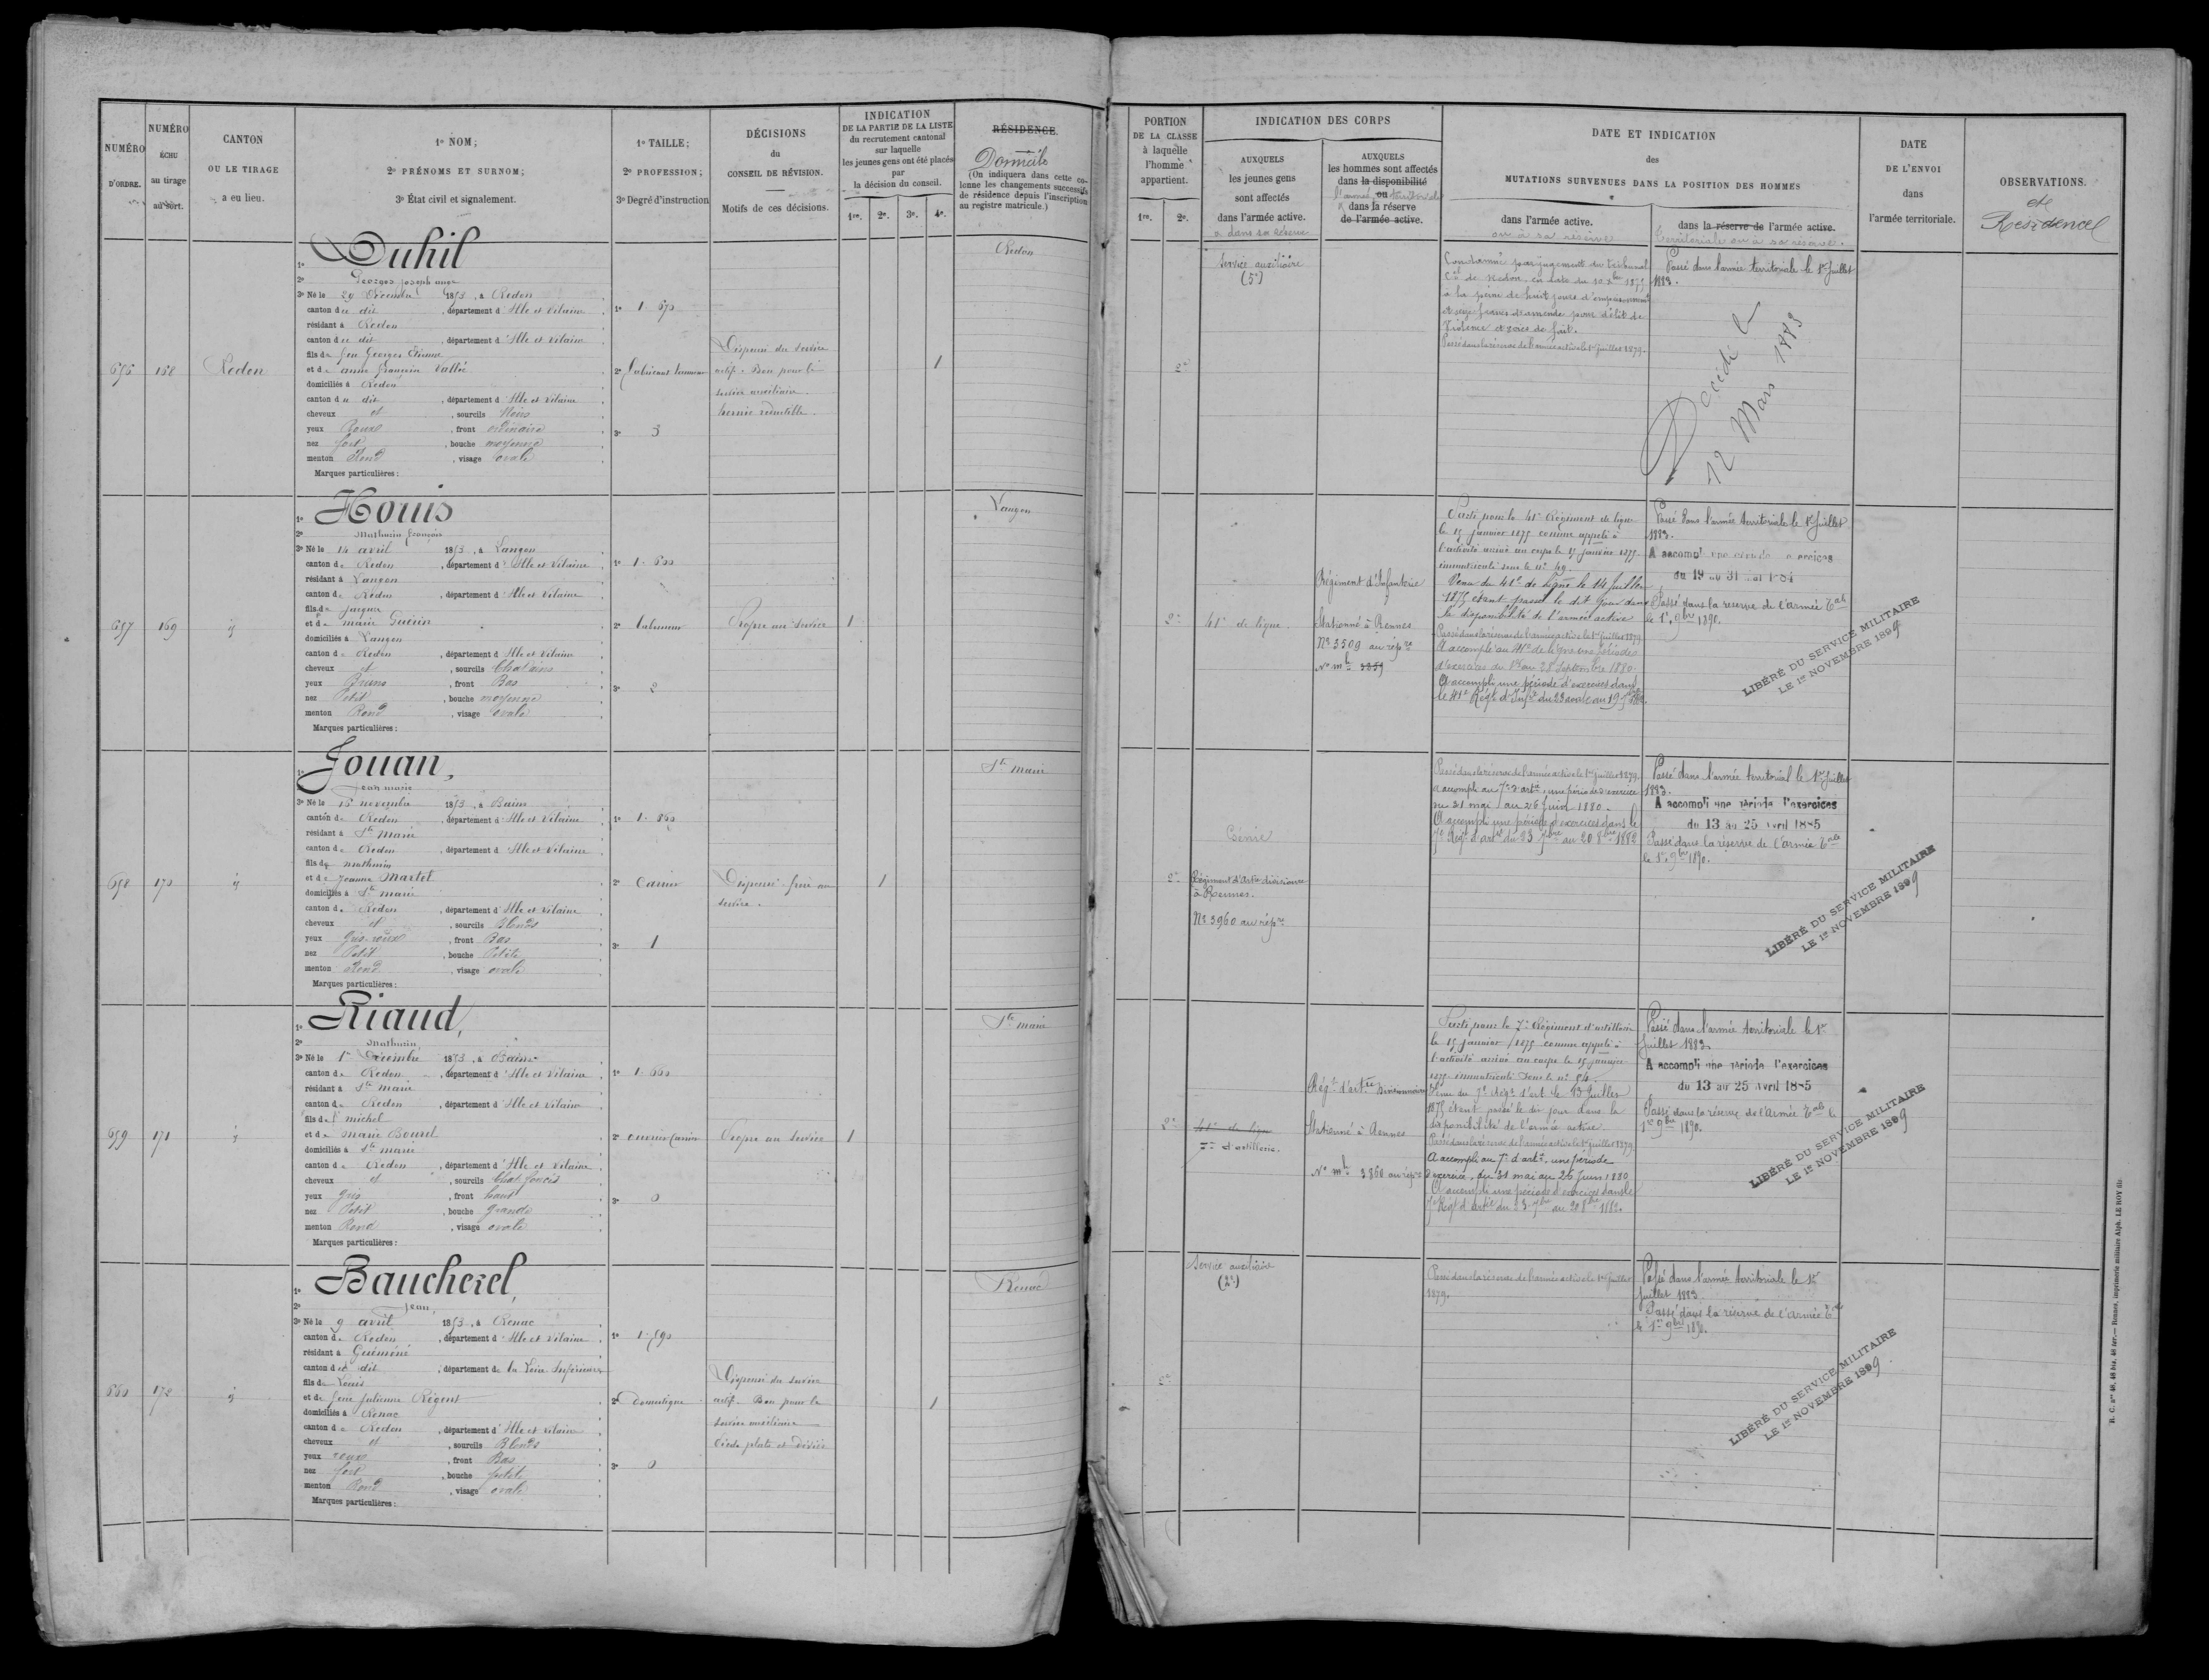 NUMÉRO D'ORDRE.
NUMÉRO ÉCHU au tirage au sort.
CANTON OU LE TIRAGE a eu lieu.
1º NOM;
2º PRÉNOMS ET SURNOM;
3º État civil et signalement.
1º TAILLE;
2º PROFESSION;
3º Degré d'instruction
DÉCISIONS
du
CONSEIL DE RÉVISION.
Motifs de ces décisions.
INDICATION
DE LA PARTIE DE LA LISTE
du recrutement cantonal
sur laquelle
les jeunes gens ont été placés
par
la décision du conseil.
1re. 2e. 3e. 4e.
RÉSIDENCE
Domicile
(On indiquera dans cette co-
lonne les changements successifs
de résidence depuis l'inscription
au registre matricule.)
656 168 Redon
1º Duhil
2º Georges Joseph ange
3º Né le 29 Décembre 1853, à Redon
canton du dit, département d'Ille et Vilaine
résidant à Redon
canton du dit, département d'Ille et Vilaine
fils de feu Georges Etienne
et de anne françoise Vallée
domiciliés à Redon
canton du dit, département d'Ille et Vilaine
cheveux et, sourcils Noirs
yeux Roux, front ordinaire
nez fort, bouche moyenne
menton Rond, visage ovale
Marques particulières:
1º 1.670
2º fabricant tanneur
3º 3
Dispensé du service
actif. Bon pour le
service auxiliaire.
hernie réductible.
1
Redon
657 169 id
1º Houis
2º Mathurin françois
3º Né le 14 avril 1853, à Langon
canton de Redon, département d'Ille et Vilaine
résidant à Langon
canton de Redon, département d'Ille et Vilaine
fils de Jacques
et de marie Guérin
domiciliés à Langon
canton de Redon, département d'Ille et Vilaine
cheveux et, sourcils Chatains
yeux Bruns, front Bas
nez Petit, bouche moyenne
menton Rond, visage ovale
Marques particulières:
1º 1.600
2º laboureur
3º 2
Propre au service
1
Langon
658 170 id
1º Jouan,
2º Jean marie
3º Né le 16 novembre 1853, à Bains
canton de Redon, département d'Ille et Vilaine
résidant à Ste Marie
canton de Redon, département d'Ille et Vilaine
fils de mathurin
et de Jeanne Martet
domiciliés à Ste marie
canton de Redon, département d'Ille et Vilaine
cheveux et, sourcils Blonds
yeux Gris-roux, front Bas
nez Petit, bouche Petite
menton Rond, visage ovale
Marques particulières:
1º 1.660
2º Carrier
3º 1
Dispensé frère au
service.
1
Ste marie
659 171 id
1º Riaud,
2º Mathurin,
3º Né le 1er Décembre 1853, à Bains
canton de Redon, département d'Ille et Vilaine
résidant à Ste marie
canton de Redon, département d'Ille et Vilaine
fils de michel
et de Marie Bourel
domiciliés à Ste marie
canton de Redon, département d'Ille et Vilaine
cheveux et, sourcils Chat. foncés
yeux gris, front haut
nez Petit, bouche grande
menton Rond, visage ovale
Marques particulières:
1º 1.660
2º ouvrier Carrier
3º 0
Propre au service
1
Ste marie
660 172 id
1º Baucherel,
2º Jean,
3º Né le 9 avril 1853, à Renac
canton de Redon, département d'Ille et Vilaine
résidant à Guéméné
canton du dit, département de la Loire Inférieure
fils de Louis
et de feue Julienne Régent
domiciliés à Renac
canton de Redon, département d'Ille et Vilaine
cheveux et, sourcils Blonds
yeux roux, front Bas
nez fort, bouche petite
menton Rond, visage ovale
Marques particulières:
1º 1.590
2º domestique
3º 0
Dispensé du service
actif. Bon pour le
service auxiliaire
Pieds plats et déviés
1
Renac
PORTION
DE LA CLASSE
à laquelle
l'homme
appartient.
1re. 2e.
INDICATION DES CORPS
AUXQUELS
les jeunes gens
sont affectés
dans l'armée active.
ou dans sa réserve
AUXQUELS
les hommes sont affectés
dans la disponibilité
ou
l'armée territoriale
dans la réserve
de l'armée active.
DATE ET INDICATION
des
MUTATIONS SURVENUES DANS LA POSITION DES HOMMES
dans l'armée active.
ou à sa réserve
dans la réserve de l'armée active.
territoriale ou à sa réserve.
DATE
DE L'ENVOI
dans
l'armée territoriale.
OBSERVATIONS.
et
Résidence
2e
Service auxiliaire
(5e)
Condamné par jugement du tribunal
Cel de Redon, en date du 10 Xbre 1875
à la peine de huit jours d'emprisonnement
et seize francs d'amende pour délit de
Violence et voies de fait.
Passé dans la réserve de l'armée active le 1er Juillet 1879.
Passé dans l'armée territoriale le 1er Juillet
1883.
Décédé le
12 Mars 1883
2e
41e de ligne.
Régiment d'Infanterie
Stationné à Rennes
No 3509 au rép re
No mle 3359
Parti pour le 41e Régiment de ligne
le 15 Janvier 1875 comme appelé à
l'activité arrivé au corps le 15 Janvier 1875
immatriculé sous le No 49.
Venu du 41e de Ligne le 14 Juillet
1875 étant passé le dit jour dans
la disponibilité de l'armée active
Passé dans la réserve de l'armée active le 1er Juillet 1879
A accompli au 41e de ligne une période
d'exercices du 1er au 28 Septembre 1880.
A accompli une période d'exercices dans
le 41e Régt d'Infie du 23 août au 19 7bre 1882.
Passé dans l'armée territoriale le 1er Juillet
1883.
A accompli une période d'exercices
du 19 au 31 mai 1884
Passé dans la réserve de l'armée Tale
le 1er 9bre 1890.
LIBÉRÉ DU SERVICE MILITAIRE
LE 1er NOVEMBRE 1899
2e
Régiment d'Artie divisionre
à Rennes.
No 3960 au rép re
Passé dans la réserve de l'armée active le 1er Juillet 1879.
A accompli au 7e d'artie, une période d'exercice
du 31 mai au 26 Juin 1880.
A accompli une période d'exercices dans le
7e Régt d'artie du 23 7bre au 20 8bre 1882
Passé dans l'armée territorial le 1er Juillet
1883.
A accompli une période d'exercices
du 13 au 25 avril 1885
Passé dans la réserve de l'armée Tale
le 1er 9bre 1890.
LIBÉRÉ DU SERVICE MILITAIRE
LE 1er NOVEMBRE 1899
2e
41e de ligne
7e d'artillerie.
Régt d'artie Divisionnaire
Stationné à Rennes
No mle 3860 au rép re
Parti pour le 7e Régiment d'artillerie
le 15 Janvier 1875 comme appelé à
l'activité arrivé au corps le 15 Janvier
1875 immatriculé sous le No 84.
Venu du 7e Régt d'art le 13 Juillet
1875 étant passé le dit jour dans la
disponibilité de l'armée active.
Passé dans la réserve de l'armée active le 1er Juillet 1879
A accompli au 7e d'artie une période
d'exercice, du 31 mai au 26 Juin 1880
A accompli une période d'exercices dans le
7e Régt d'artie du 23 7bre au 20 8bre 1882.
Passé dans l'armée territoriale le 1er
Juillet 1883
A accompli une période d'exercices
du 13 au 25 avril 1885
Passé dans la réserve de l'armée Tale le
1er 9bre 1890.
LIBÉRÉ DU SERVICE MILITAIRE
LE 1er NOVEMBRE 1899
2e
Service auxiliaire
(2e)
Passé dans la réserve de l'armée active le 1er Juillet
1879.
Passé dans l'armée territoriale le 1er
Juillet 1883
Passé dans la réserve de l'armée Tale
le 1er 9bre 1890.
LIBÉRÉ DU SERVICE MILITAIRE
LE 1er NOVEMBRE 1899
Rennes, imprimerie militaire Alph. LE ROY fils.